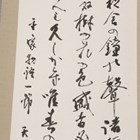 舎の鐘の聲諸
双樹の花の色盛者必
人も久しからず唯春の
平家物語一節 天